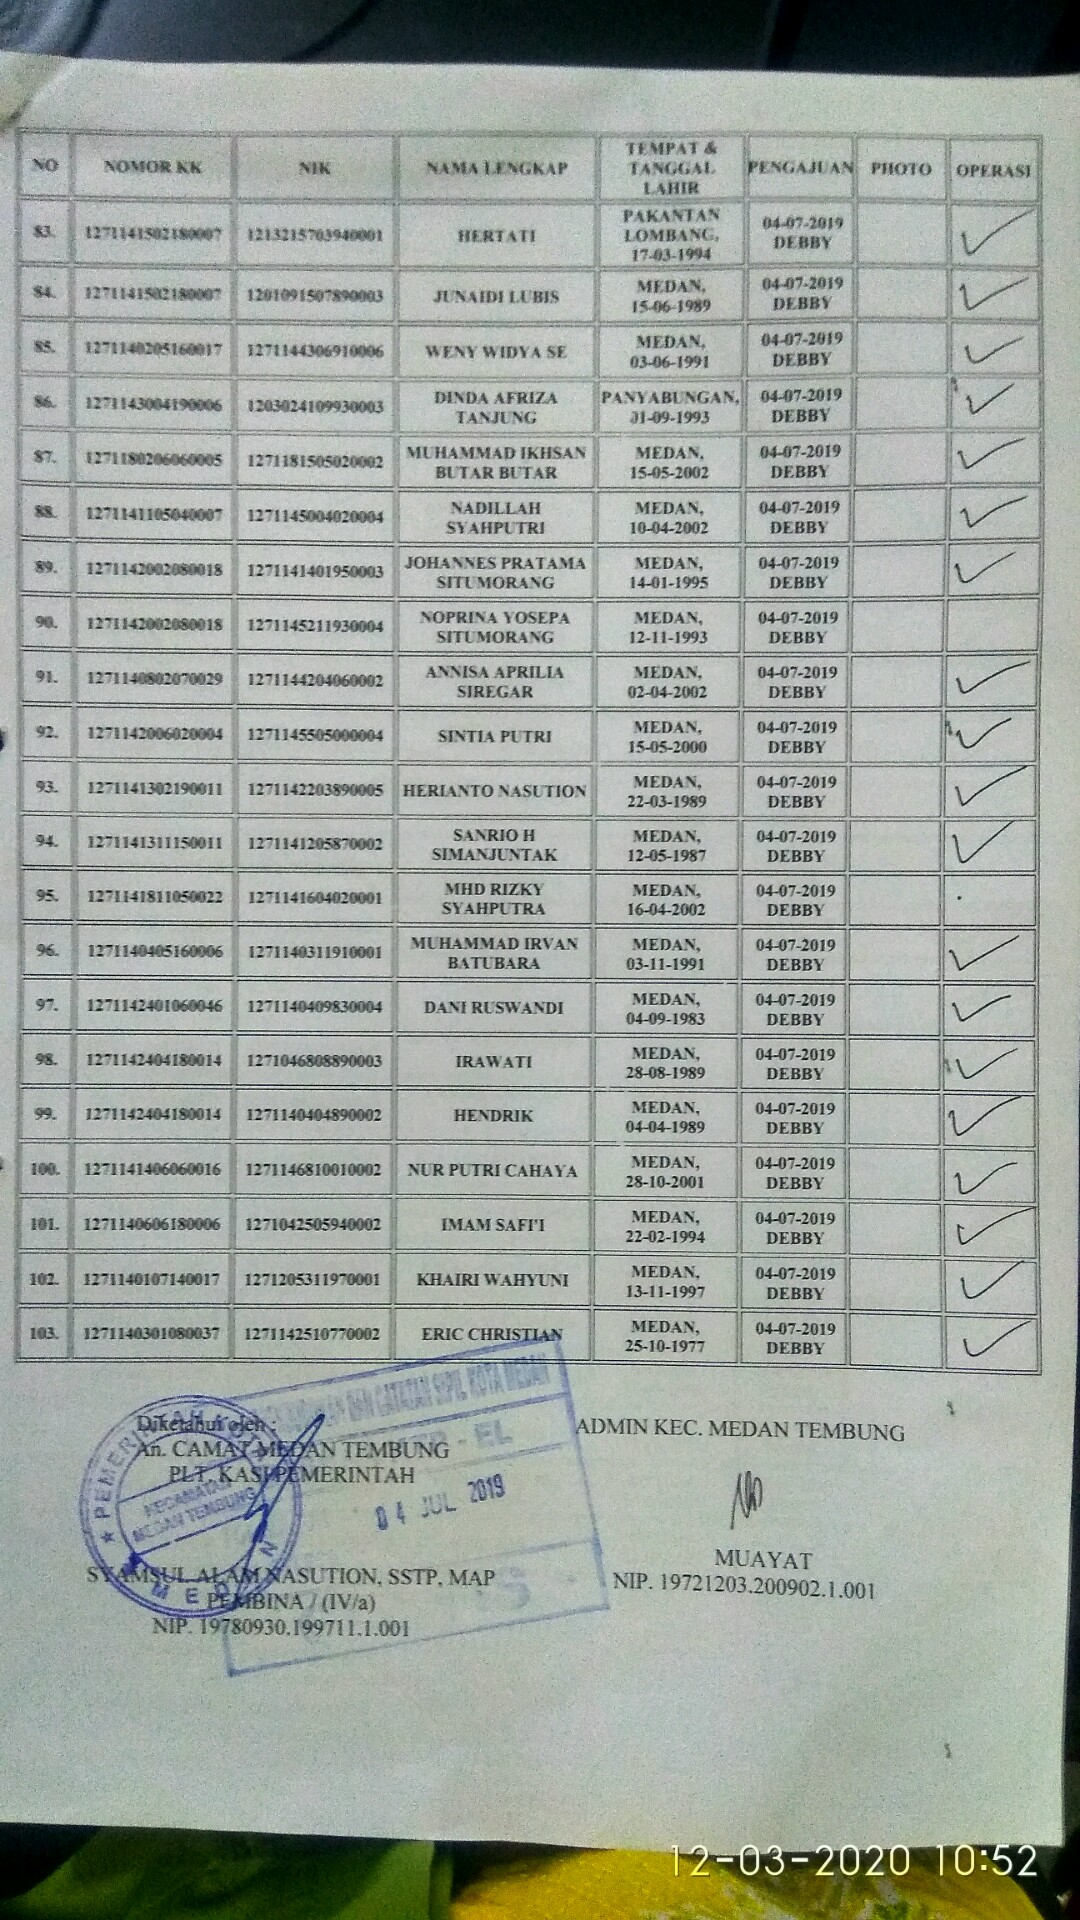 NO NOMOR KK NIK NAMA LENGKAP TEMPAT & TANGGAL LAHIR PENGAJUAN PHOTO OPERASI
83. 1271141502180007 1213215703940001 HERTATI PAKANTAN LOMBANG, 17-03-1994 04-07-2019 DEBBY
84. 1271141502180007 1201091507890003 JUNAIDI LUBIS MEDAN, 15-06-1989 04-07-2019 DEBBY
85. 1271140205160017 1271144306910006 WENY WIDYA SE MEDAN, 03-06-1991 04-07-2019 DEBBY
86. 1271143004190006 1203024109930003 DINDA AFRIZA TANJUNG PANYABUNGAN, 01-09-1993 04-07-2019 DEBBY
87. 1271180206060005 1271181505020002 MUHAMMAD IKHSAN BUTAR BUTAR MEDAN, 15-05-2002 04-07-2019 DEBBY
88. 1271141105040007 1271145004020004 NADILLAH SYAHPUTRI MEDAN, 10-04-2002 04-07-2019 DEBBY
89. 1271142002080018 1271141401950003 JOHANNES PRATAMA SITUMORANG MEDAN, 14-01-1995 04-07-2019 DEBBY
90. 1271142002080018 1271145211930004 NOPRINA YOSEPA SITUMORANG MEDAN, 12-11-1993 04-07-2019 DEBBY
91. 1271140802070029 1271144204060002 ANNISA APRILIA SIREGAR MEDAN, 02-04-2002 04-07-2019 DEBBY
92. 1271142006020004 1271145505000004 SINTIA PUTRI MEDAN, 15-05-2000 04-07-2019 DEBBY
93. 1271141302190011 1271142203890005 HERIANTO NASUTION MEDAN, 22-03-1989 04-07-2019 DEBBY
94. 1271141311150011 1271141205870002 SANRIO H SIMANJUNTAK MEDAN, 12-05-1987 04-07-2019 DEBBY
95. 1271141811050022 1271141604020001 MHD RIZKY SYAHPUTRA MEDAN, 16-04-2002 04-07-2019 DEBBY
96. 1271140405160006 1271140311910001 MUHAMMAD IRVAN BATUBARA MEDAN, 03-11-1991 04-07-2019 DEBBY
97. 1271142401060046 1271140409830004 DANI RUSWANDI MEDAN, 04-09-1983 04-07-2019 DEBBY
98. 1271142404180014 1271046808890003 IRAWATI MEDAN, 28-08-1989 04-07-2019 DEBBY
99. 1271142404180014 1271140404890002 HENDRIK MEDAN, 04-04-1989 04-07-2019 DEBBY
100. 1271141406060016 1271146810010002 NUR PUTRI CAHAYA MEDAN, 28-10-2001 04-07-2019 DEBBY
101. 1271140606180006 1271042505940002 IMAM SAFI'I MEDAN, 22-02-1994 04-07-2019 DEBBY
102. 1271140107140017 1271205311970001 KHAIRI WAHYUNI MEDAN, 13-11-1997 04-07-2019 DEBBY
103. 1271140301080037 1271142510770002 ERIC CHRISTIAN MEDAN, 25-10-1977 04-07-2019 DEBBY
Diketahui oleh :
An. CAMAT MEDAN TEMBUNG
PLT. KASI PEMERINTAH
SYAMSUL ALAM NASUTION, SSTP, MAP
PEMBINA / (IV/a)
NIP. 19780930.199711.1.001
PEMERINTAH KOTA MEDAN
KECAMATAN
MEDAN TEMBUNG
DAN CATATAN SIPIL KOTA MEDAN
- EL
04 JUL 2019
ADMIN KEC. MEDAN TEMBUNG
MUAYAT
NIP. 19721203.200902.1.001
12-03-2020 10:52